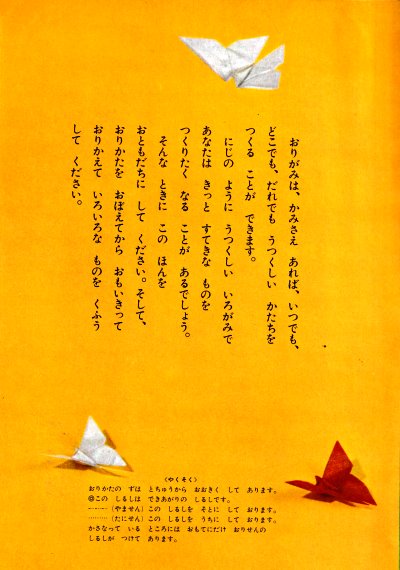 おりがみは、かみさえ あれば、いつでも、
どこでも、だれでも うつくしい かたちを
つくる ことが できます。
にじの ように うつくしい いろがみで
あなたは きっと すてきな ものを
つくりたく なる ことが あるでしょう。
そんな ときに この ほんを
おともだちに して ください。そして、
おりかたを おぼえてから おもいきって
おりかえて いろいろな ものを くふう
して ください。
〈やくそく〉
おりかたの ずは とちゅうから おおきく して あります。
◎この しるしは できあがりの しるしです。
―・―・― (やません) この しるしを そとに して おります。
……… (たにせん) この しるしを うちに して おります。
かさなって いる ところには おもてにだけ おりせんの
しるしが つけて あります。